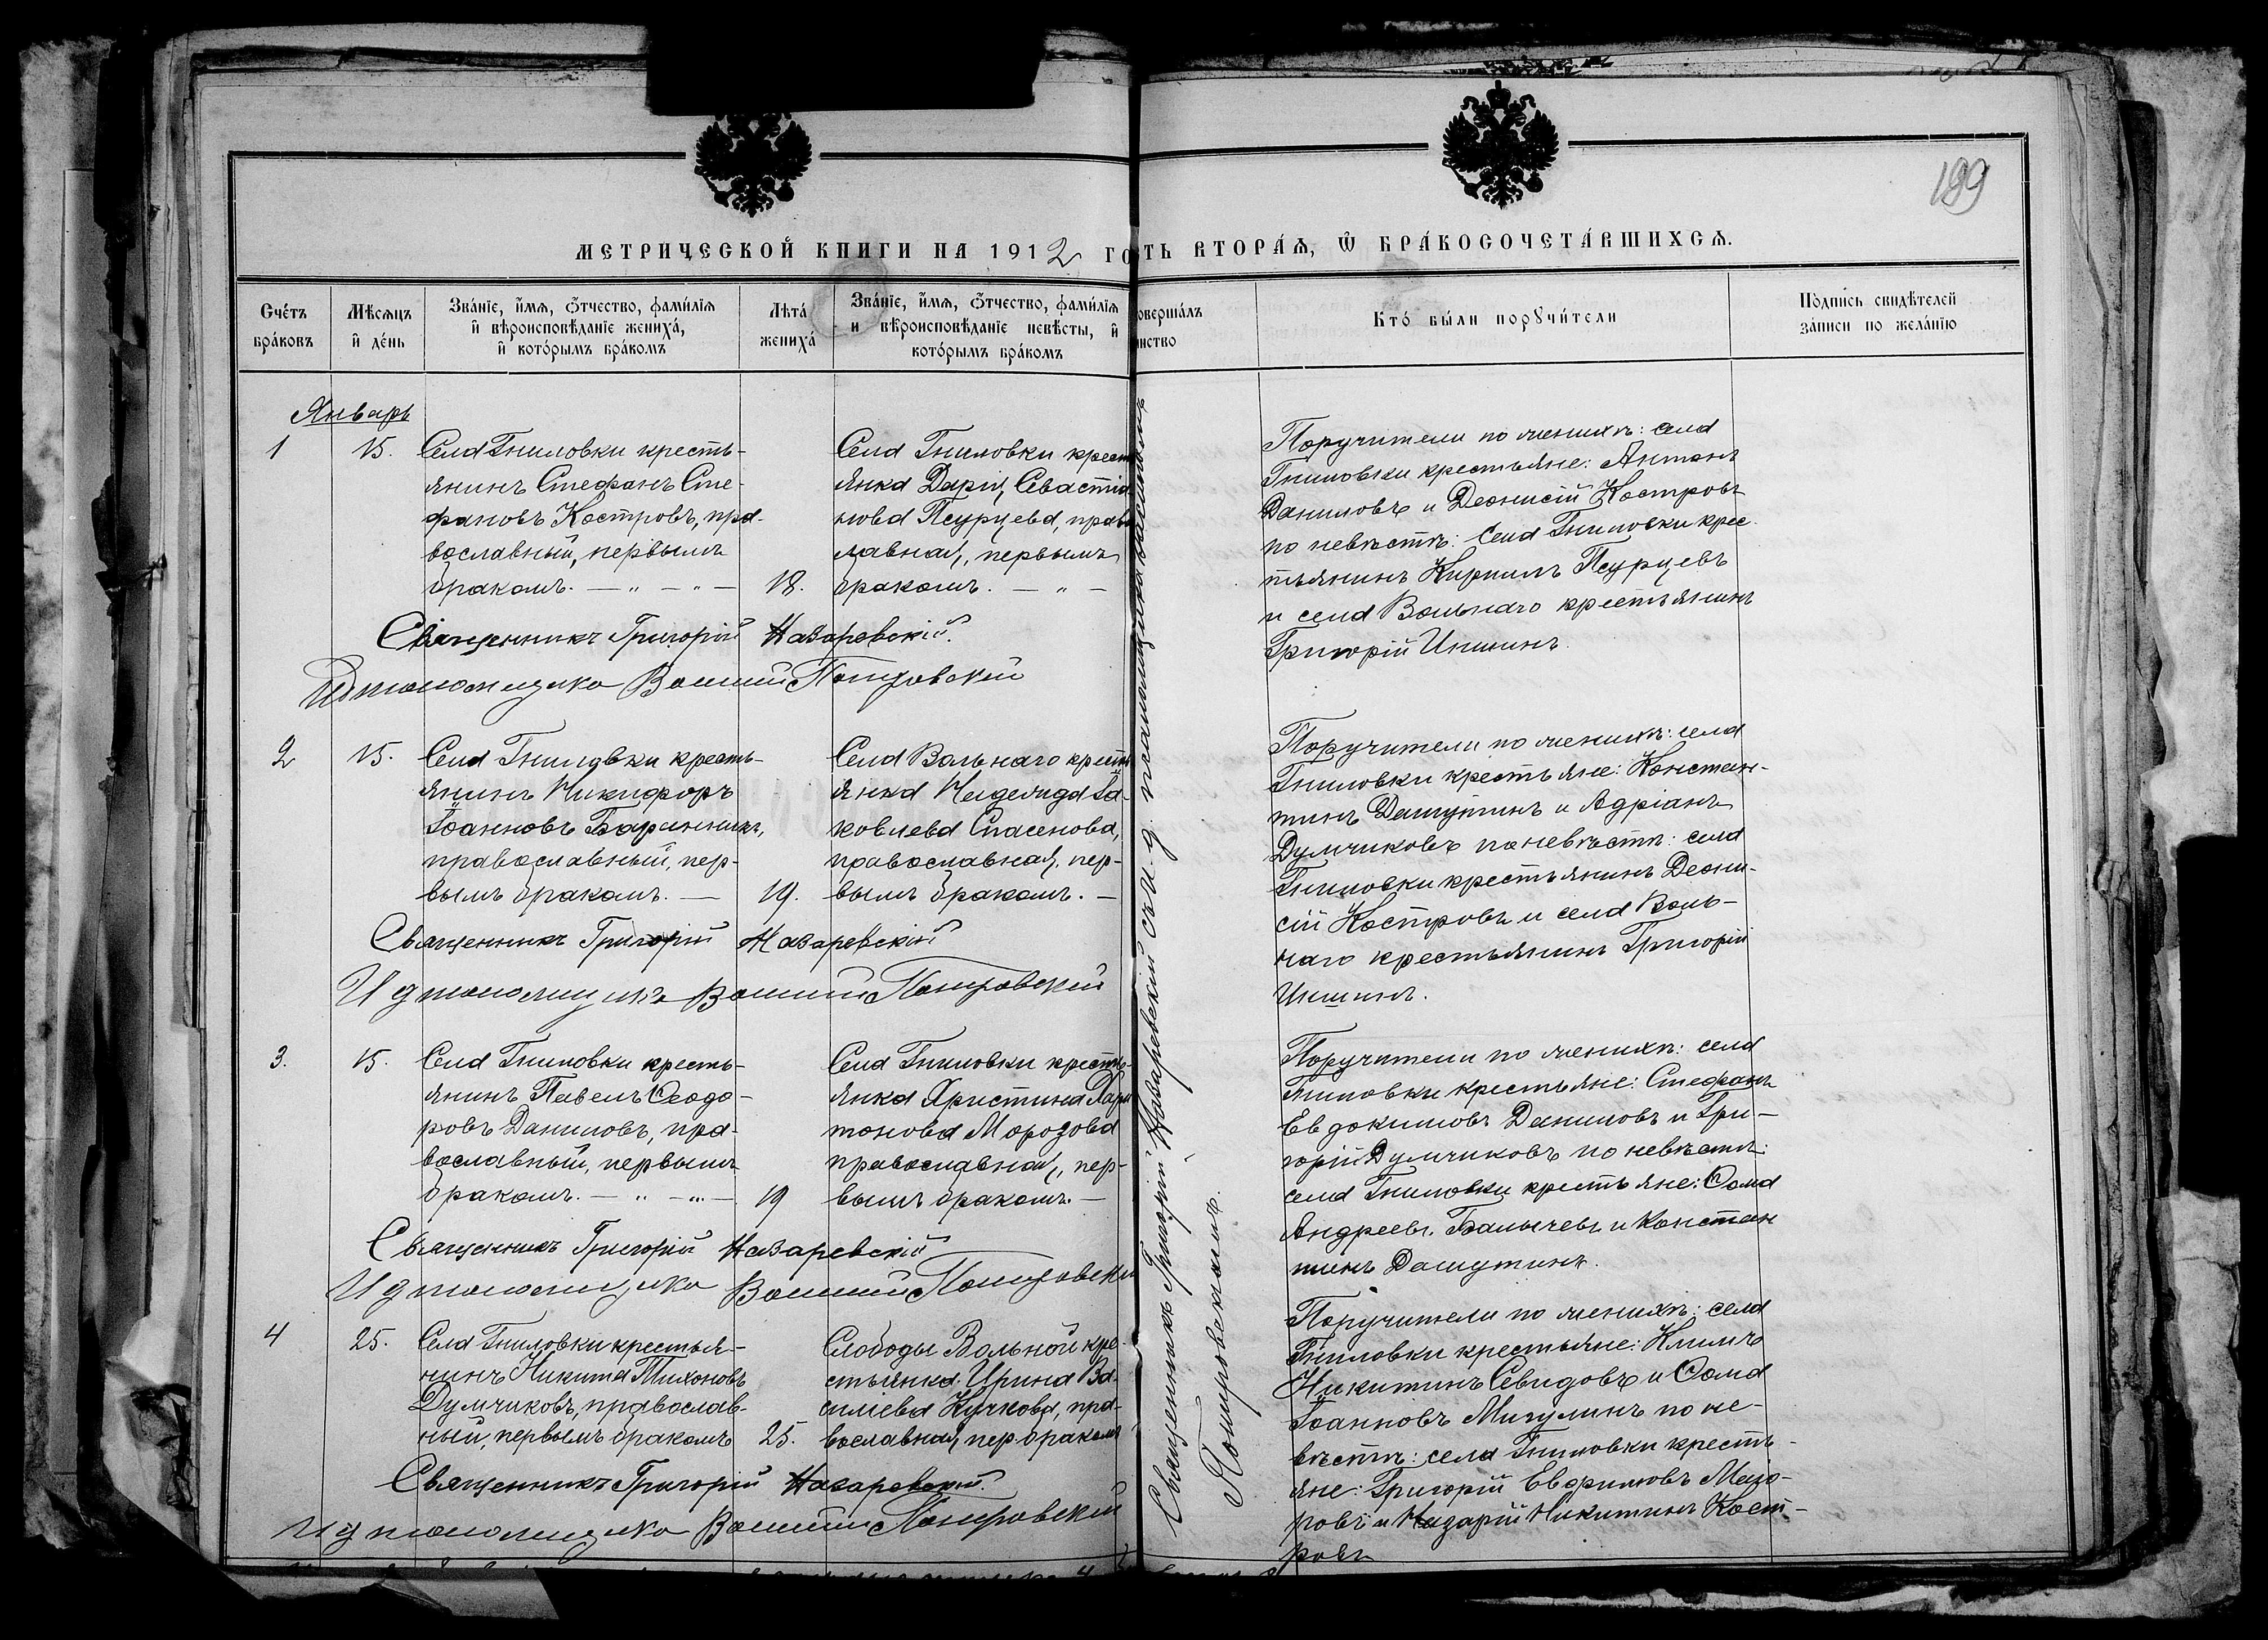 199
МЕТРИЧЕСКОЙ КНИГИ НА 1912 ГО
ТЬ ВТОРАѦ, Ѿ БРАКОСОЧЕТАВШИХСѦ.
Счетъ
браковъ
Мѣсѧцъ
и день
Званіе, имѧ, ѿчество, фамиліѧ
и вѣроисповѣданіе жениха,
и которымъ бракомъ
Лѣта
жениха
Званіе, имѧ, ѿчество, фамиліѧ
и вѣроисповѣданіе невѣсты, и
которымъ бракомъ
овершалъ
инство
Кто были порꙋчители
Подпись свидѣтелей
записи по желанію
Январь
1
15.
Села Гниловки кресть-
янинъ Стефанъ Сте-
фановъ Костровъ, пра-
вославный, первымъ
бракомъ. — „ — „ —
18.
Села Гниловки крест
янка Дарія Севастіа
нова Псурцева, право
лавная, первымъ
бракомъ. — „ —
Поручители по женихѣ: села
Гниловки крестьяне: Антонъ
Даниловъ и Деонисій Костровъ
по невѣстѣ: села Гниловки крес-
тьянинъ Кириллъ Псурцевъ
и села Вольнаго крестьянинъ
Григорій Икшинъ.
Священникъ Григорій Назаревскій.
И д псаломщика Василий Покровский
2
15.
Села Гниловки кресть-
янинъ Никифоръ
Іоанновъ Баринникъ,
православный, пер-
вымъ бракомъ. —
19.
Села Вольнаго кресть
янка Неделида Іа-
ковлева Спасенова,
православная, пер-
вымъ бракомъ. —
Поручители по женихѣ: села
Гниловки крестьяне: Констан-
тинъ Дашутинъ и Адріанъ
Думчиковъ по невѣстѣ: села
Гниловки крестьянинъ Деони-
сій Костровъ и села Воль-
наго крестьянинъ Григорій
Икшинъ.
Священникъ Григорій Назаревскій
И д псаломщика Василий Покровский
3.
15.
Села Гниловки кресть-
янинъ Павелъ Ѳеодо-
ровъ Даниловъ, пра-
вославный, первымъ
бракомъ. — „ — „ —
19
Села Гниловки кресть-
янка Христина Хари
тонова Морозова
православная, пер-
вымъ бракомъ. —
Поручители по женихѣ: села
Гниловки крестьяне: Стефанъ
Евдокимовъ Даниловъ и Гри-
горій Думчиковъ по невѣстѣ:
села Гниловки крестьяне: Ѳома
Андреевъ Балычевъ и Констан
тинъ Дашутинъ.
Священникъ Григорій Назаревскій
И д псаломщика Василий Покровски
4
25.
Села Гниловки крестья-
нинъ Никита Тихоновъ
Думчиковъ, православ-
ный, первымъ бракомъ
25.
Слободы Вольной кре-
стьянка Ирина Ва-
сильева Кучкова, пра-
вославная, пер бракомъ
Поручители по женихѣ: села
Гниловки крестьяне: Климъ
Никитинъ Севидовъ и Ѳома
Іоанновъ Мигулинъ по не-
вѣстѣ: села Гниловки кресть-
яне: Григорій Евфимовъ
и Назарій Никитинъ Кост-
ровъ
Священникъ Григорій Назаревскій.
И д псаломщика Василий Покровский
Священникъ Григорій Назаревскій съ и. д. псаломщика Василіемъ
Покровскимъ.